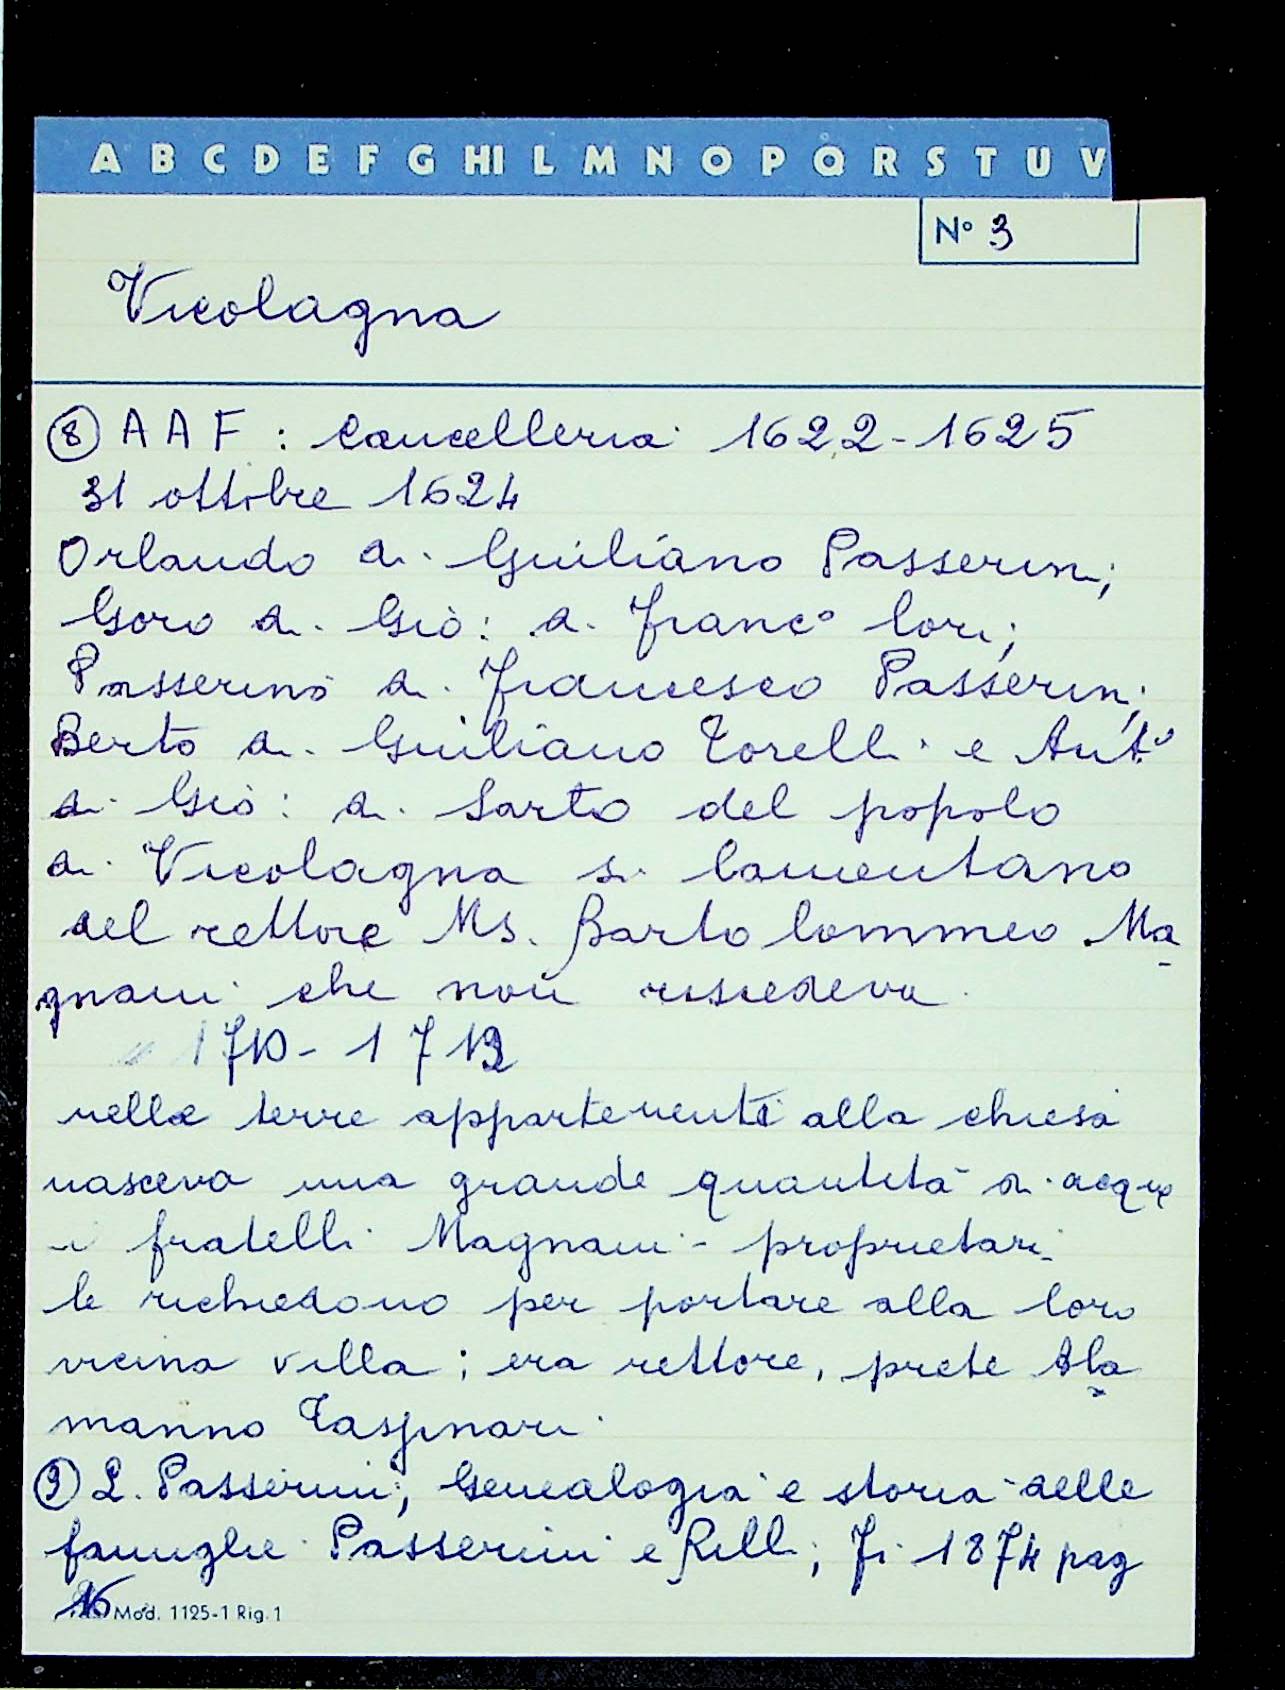 A B C D E F G HI L M N O P Q R S T U V
N° 3
Vicolagna
8 A A F : Cancelleria 1622-1625
31 ottobre 1624
Orlando di Giuliano Passerini;
Goro di Giò: di Franc° Cori;
Passerino di Francesco Passerini;
Berto di Giuliano Torelli e Ant°
di Giò: di Sarto del popolo
di Vicolagna si lamentano
del rettore Ms. Bartolommeo Ma
gnani che non risiedeva
1710-1712
nelle terre appartenenti alla chiesa
nasceva una grande quantità di acque
i fratelli Magnani - proprietari
le richiedono per portare alla loro
vicina villa; era rettore, prete Ala
manno
9 L. Passerini, Genealogia e storia delle
famiglie Passerini e Rilli; Fi 1874 pag
16
Mod. 1125-1 Rig. 1